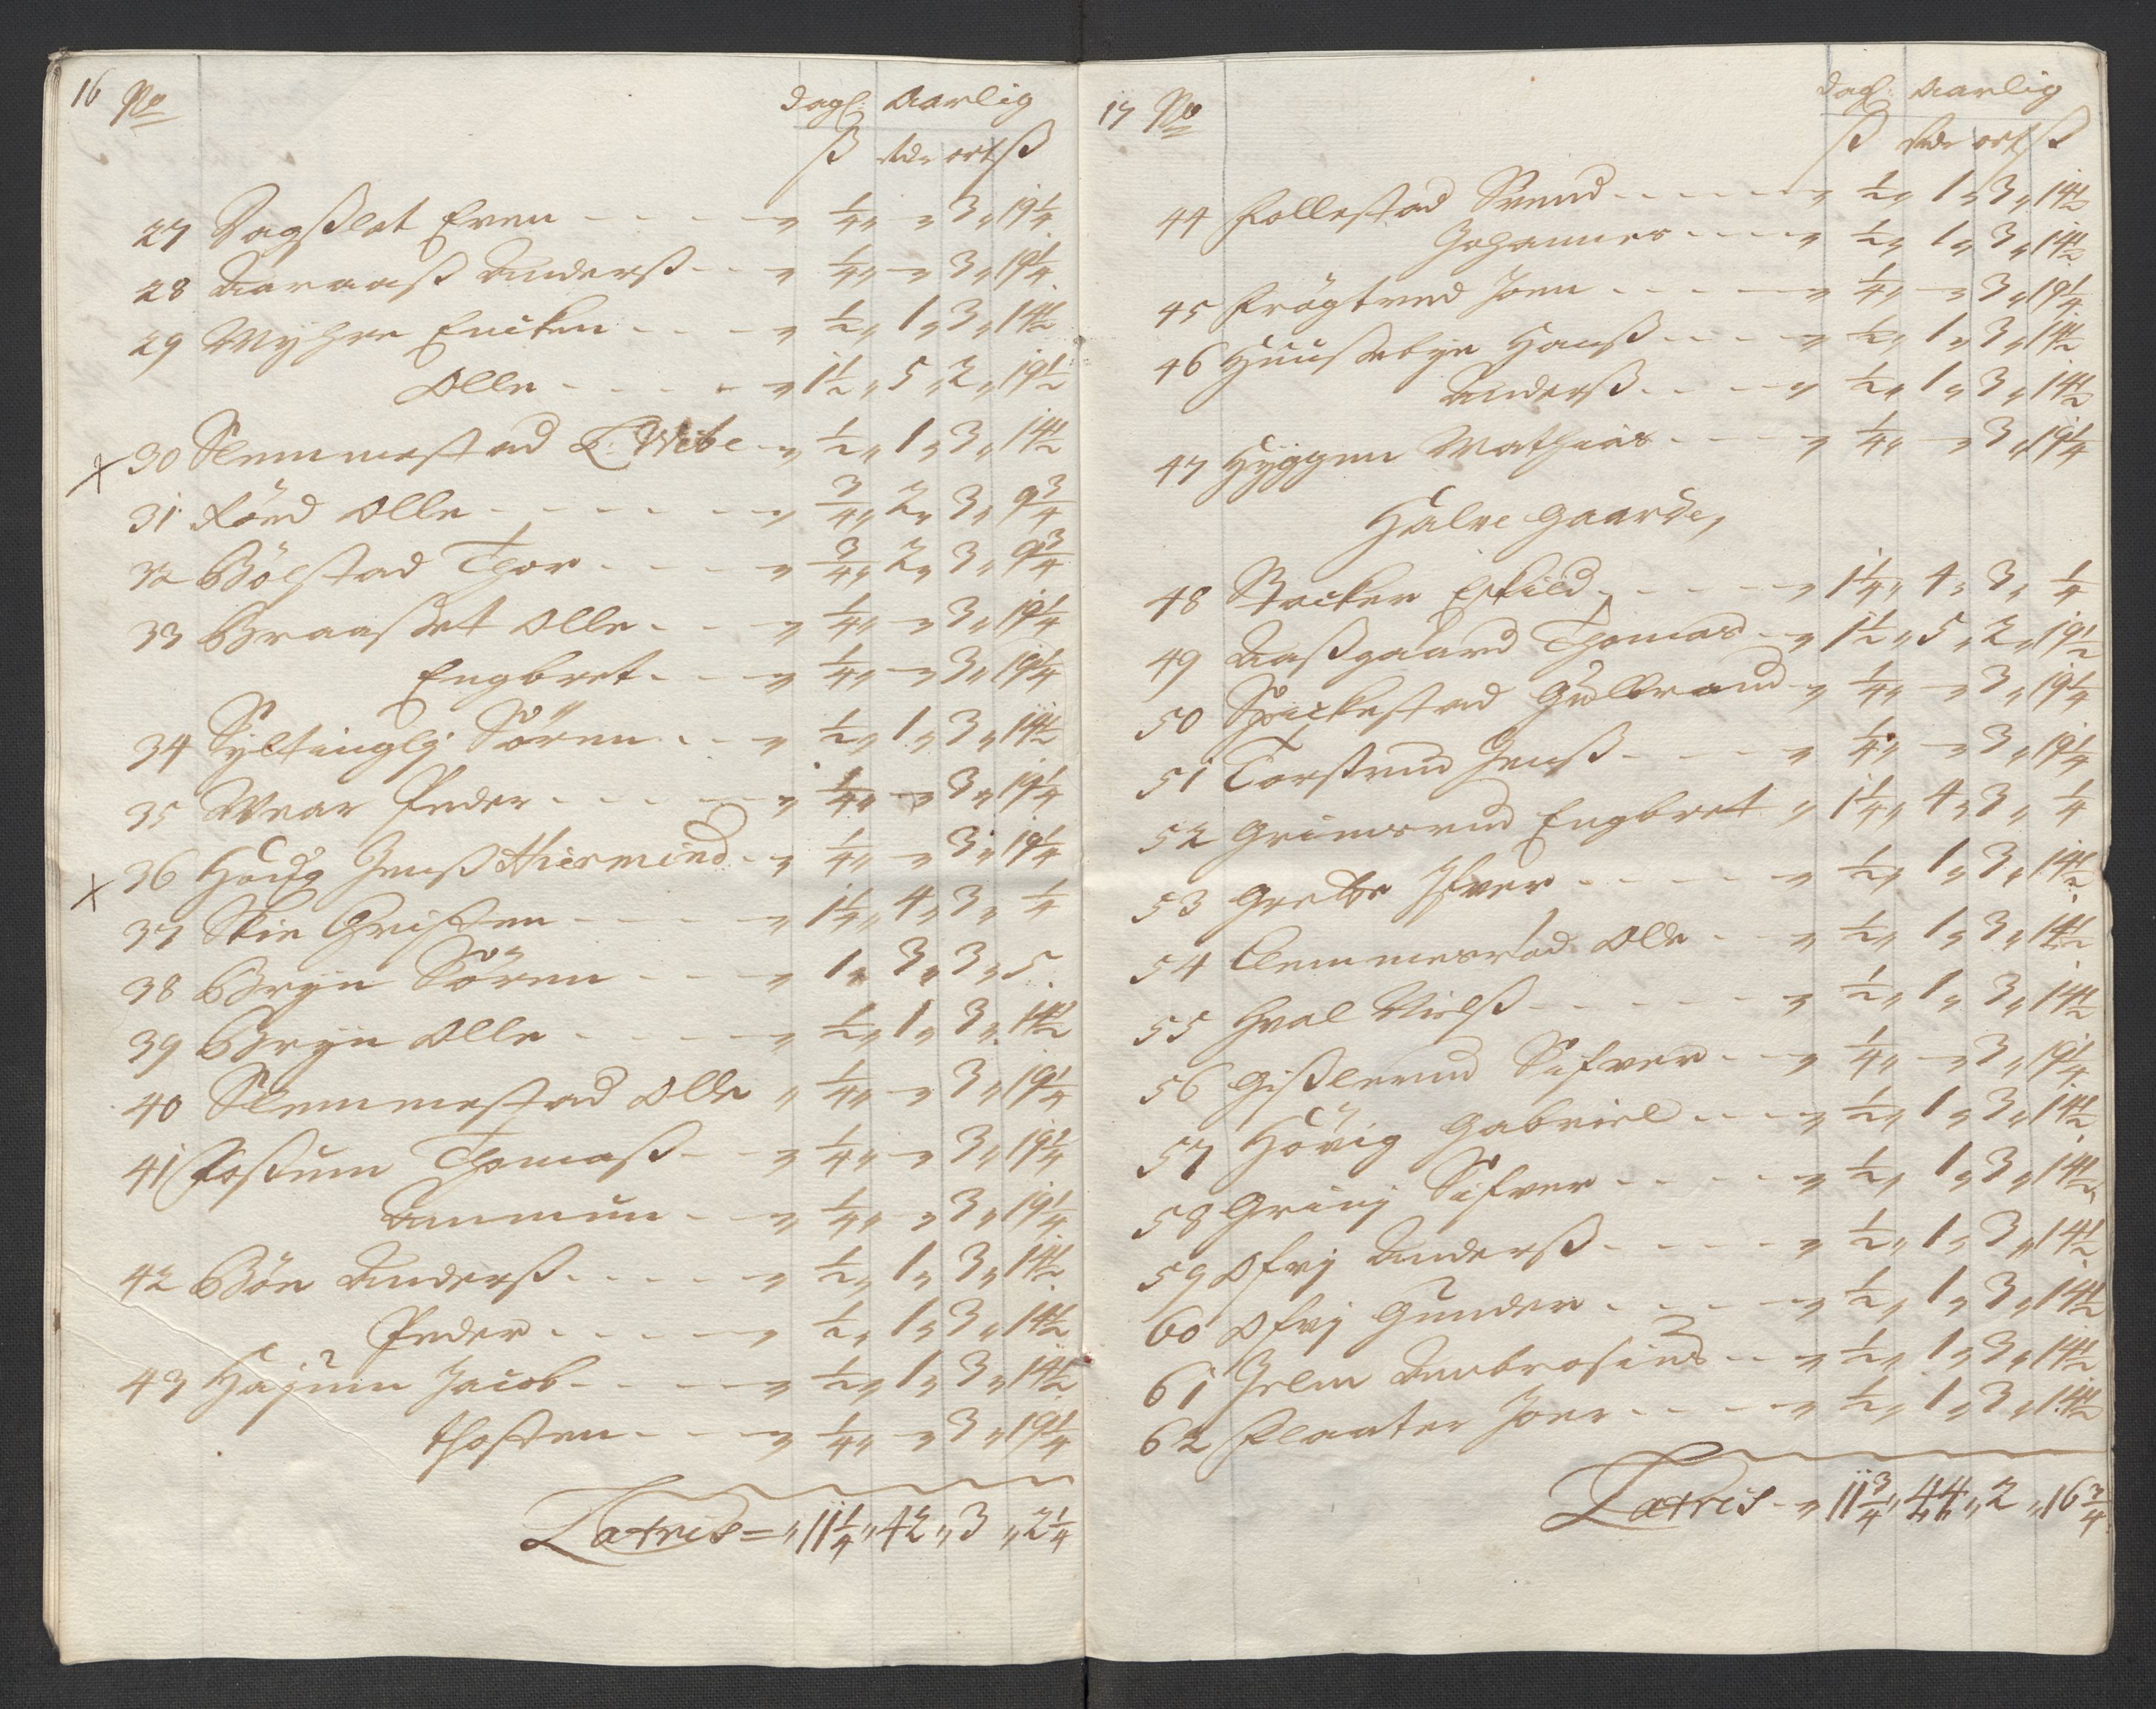 16 No
Dagl: Aarlig
ß Rdr ort ß
27 Dagßlet Even - - - - " 1/4 " " 3 " 19 1/4
28 Aaraaß Anderß - - " 1/4 " - " 3 " 19 1/4
29 Myhre Encken - - - " 1/2 " 1 " 3 " 14 1/2
Olle - - - - " 1 1/2 " 5 " 2 " 19 1/2
x 30 Slemmestad T. Wibe - " 1/2 " 1 " 3 " 14 1/2
31 Röed Olle - - - - - " 3/4 " 2 " 3 " 9 3/4
32 Bölstad Thor - - - - " 3/4 " 2 " 3 " 9 3/4
33 Braaset Olle - - - " 1/4 " - " 3 " 19 1/4
Engbret - - - " 1/4 " - " 3 " 19 1/4
34 Syltingli Sören - - - " 1/2 " 1 " 3 " 14 1/2
35 Wear Peder - - - - - " 1/4 " - " 3 " 19 1/4
x 36 Houg Jenß Hiermind - " 1/4 " - " 3 " 19 1/4
37 Skie Christen - - - - " 1 1/4 " 4 " 3 " 1/4
38 Bryn Sören - - - " 1 " 3 " 3 " 5
39 Bryn Olle - - - - - " 1/2 " 1 " 3 " 14 1/2
40 Slemmestad Olle " 1/4 " - " 3 " 19 1/4
41 Foßum Thomaß - - " 1/4 " - " 3 " 19 1/4
Ammun - - " 1/4 " - " 3 " 19 1/4
42 Böe Anderß - - - - - " 1/2 " 1 " 3 " 14 1/2
Peder - - - - - " 1/2 " 1 " 3 " 14 1/2
43 Hajum Jacob - - - - " 1/2 " 1 " 3 " 14 1/2
thosten - - - " 1/4 " - " 3 " 19 1/4
Latris = " 11 1/4 " 42 " 3 " 2 1/4
17 No
Dagl: Aarlig
ß Rdr ort ß
44 Follestad Svend - - - - - " 1/2 " 1 " 3 " 14 1/2
Johannes - - - - " 1/2 " 1 " 3 " 14 1/2
45 Frögtved Joen - - - - " 1/4 " - " 3 " 19 1/4
46 Huusebye Hanß - - - " 1/2 " 1 " 3 " 14 1/2
Anderß - - - - " 1/2 " 1 " 3 " 14 1/2
47 Hyggen Mathias - - - " 1/4 " - " 3 " 19 1/4
Halve Gaarde,
48 Stocker Eskild - - - - " 1 1/4 " 4 " 3 " 1/4
49 Aaßgaard Thomas - " 1 1/2 " 5 " 2 " 19 1/2
50 Spickestad Gulbrand " 1/4 " - " 3 " 19 1/4
51 Torßrud Jenß - - - - " 1/4 " - " 3 " 19 1/4
52 Grimsrud Engbret " 1 1/4 " 4 " 3 " 1/4
53 Grette Ifver - - - - - " 1/2 " 1 " 3 " 14 1/2
54 Clemmesrud Olle - - " 1/2 " 1 " 3 " 14 1/2
55 Hval Nielß - - - - - - " 1/2 " 1 " 3 " 14 1/2
56 Gißlerud Sifver - - " 1/4 " - " 3 " 19 1/4
57 Hövig Gabriel - - - " 1/2 " 1 " 3 " 14 1/2
58 Grini Sifver - - - - " 1/2 " 1 " 3 " 14 1/2
59 Ofvj Anderß - - - - - " 1/2 " 1 " 3 " 14 1/2
60 Ofvj Gunder - - - - - " 1/2 " 1 " 3 " 14 1/2
61 Jelm Ambrosius - - " 1/2 " 1 " 3 " 14 1/2
62 Plaater Joen - - - - " 1/2 " 1 " 3 " 14 1/2
Latris - " 11 3/4 " 44 " 2 " 16 3/4